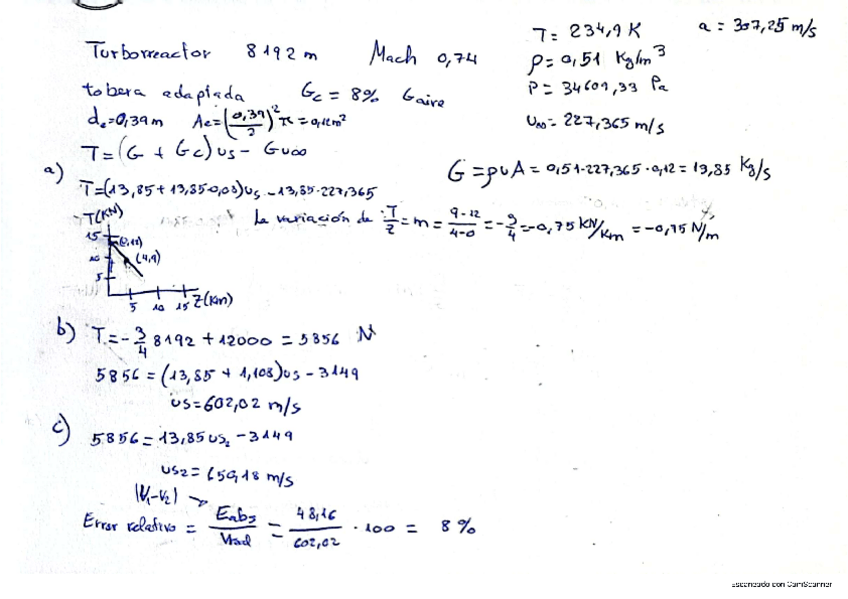 T = 234,9 K a = 307,25 m/s
Turborreactor 8192 m Mach 0,74
ρ = 0,51 Kg/m³
tobera adaptada Gc = 8% Gaire
P = 34609,33 Pa
de = 0,39 m Ae = (0,39/2)² π = 0,12 m²
u∞ = 227,365 m/s
T = (G + Gc) us - G u∞
a) G = ρuA = 0,51·227,365·0,12 = 13,85 Kg/s
T = (13,85 + 13,85·0,08) us - 13,85·227,365
T(KN)
La variación de T/Z = m = 9-12/4-0 = -3/4 = -0,75 KN/Km = -0,75 N/m
15
(0,12)
10
(4,9)
5
5 10 15 Z(Km)
b) T = -3/4 8192 + 12000 = 5856 N
5856 = (13,85 + 1,108) us - 3149
us = 602,02 m/s
c) 5856 = 13,85 us₂ - 3149
us₂ = 650,18 m/s
|V₁-V₂|
Error relativo = Eabs/Vreal = 48,16/602,02 · 100 = 8 %
Escaneado con CamScanner